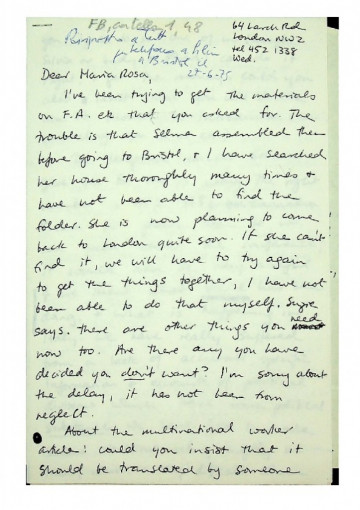 FB, cartella 1, 48
64 Larch Rd.
London NW2
tel 452 1338
Wed.
a Bristol il
27-6-75
Dear Maria Rosa,
I've been trying to get the materials
on F.A. etc that you asked for. The
trouble is that Selma assembled them
before going to Bristol, & I have searched
her house thoroughly many times &
have not been able to find the
folder. She is now planning to come
back to London quite soon. If she can't
find it, we will have to try again
to get the things together, I have not
been able to do that myself. Suzie
says there are other things you need
now too. Are there any you have
decided you don't want? I'm sorry about
the delay, it has not been from
neglect.
About the multinational worker
article: could you insist that it
should be translated by someone